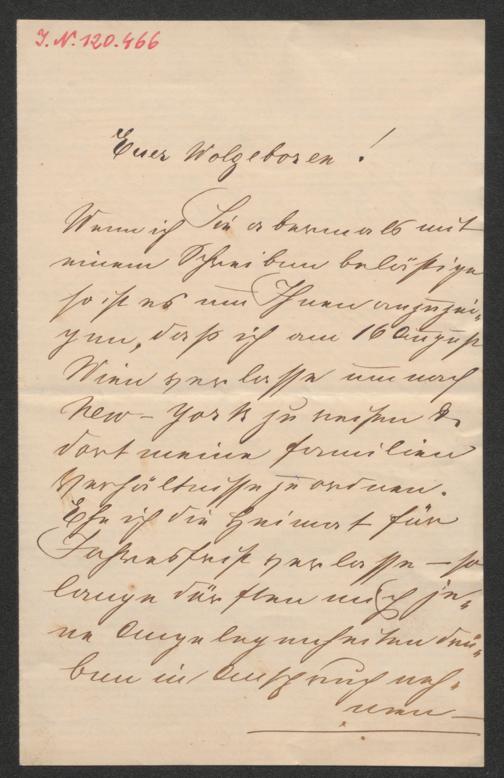 J. N. 120.466
Euer Wolgeboren!
Wenn ich Sie abermals mit
einem Schreiben belästige
so ist es um Ihnen anzuzei-
gen, daß ich am 16 August
Wien verlasse um nach
New-York zu reisen &
dort meine familien
verhältnisse zu ordnen.
Ehe ich die Heimat für
Jahresfrist verlasse – so
lange dürften mich je-
ne Angelegenheiten drü-
ben in Anspruch neh-
men –